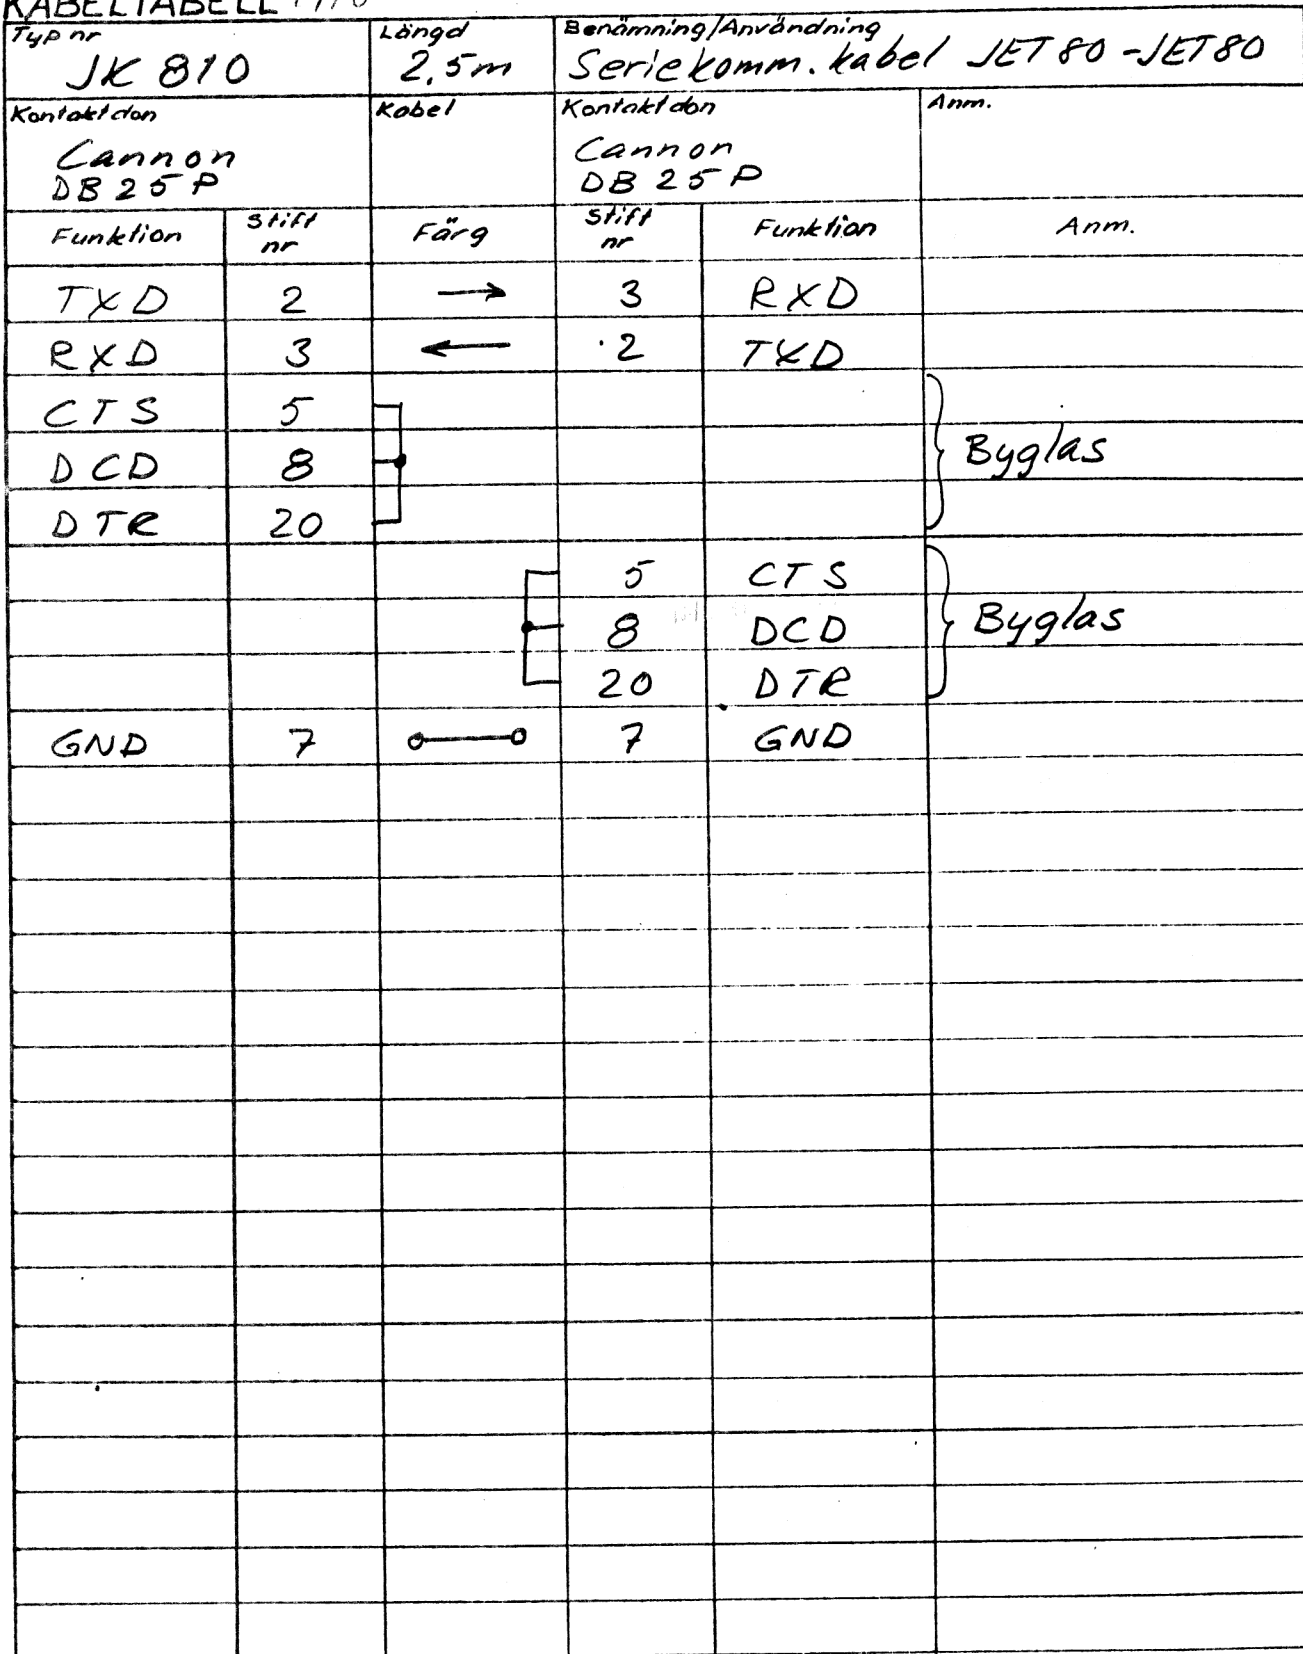 KABELTABELL
Typ nr Längd Benämning/Användning
JK 810 2,5m Seriekomm. kabel JET80-JET80
Kontaktdon Kabel Kontaktdon Anm.
Cannon Cannon
DB25P DB25P
Funktion Stift nr Färg Stift nr Funktion Anm.
TXD 2 → 3 RXD
RXD 3 ← 2 TXD
CTS 5
DCD 8 Byglas
DTR 20
5 CTS
8 DCD Byglas
20 DTR
GND 7 7 GND